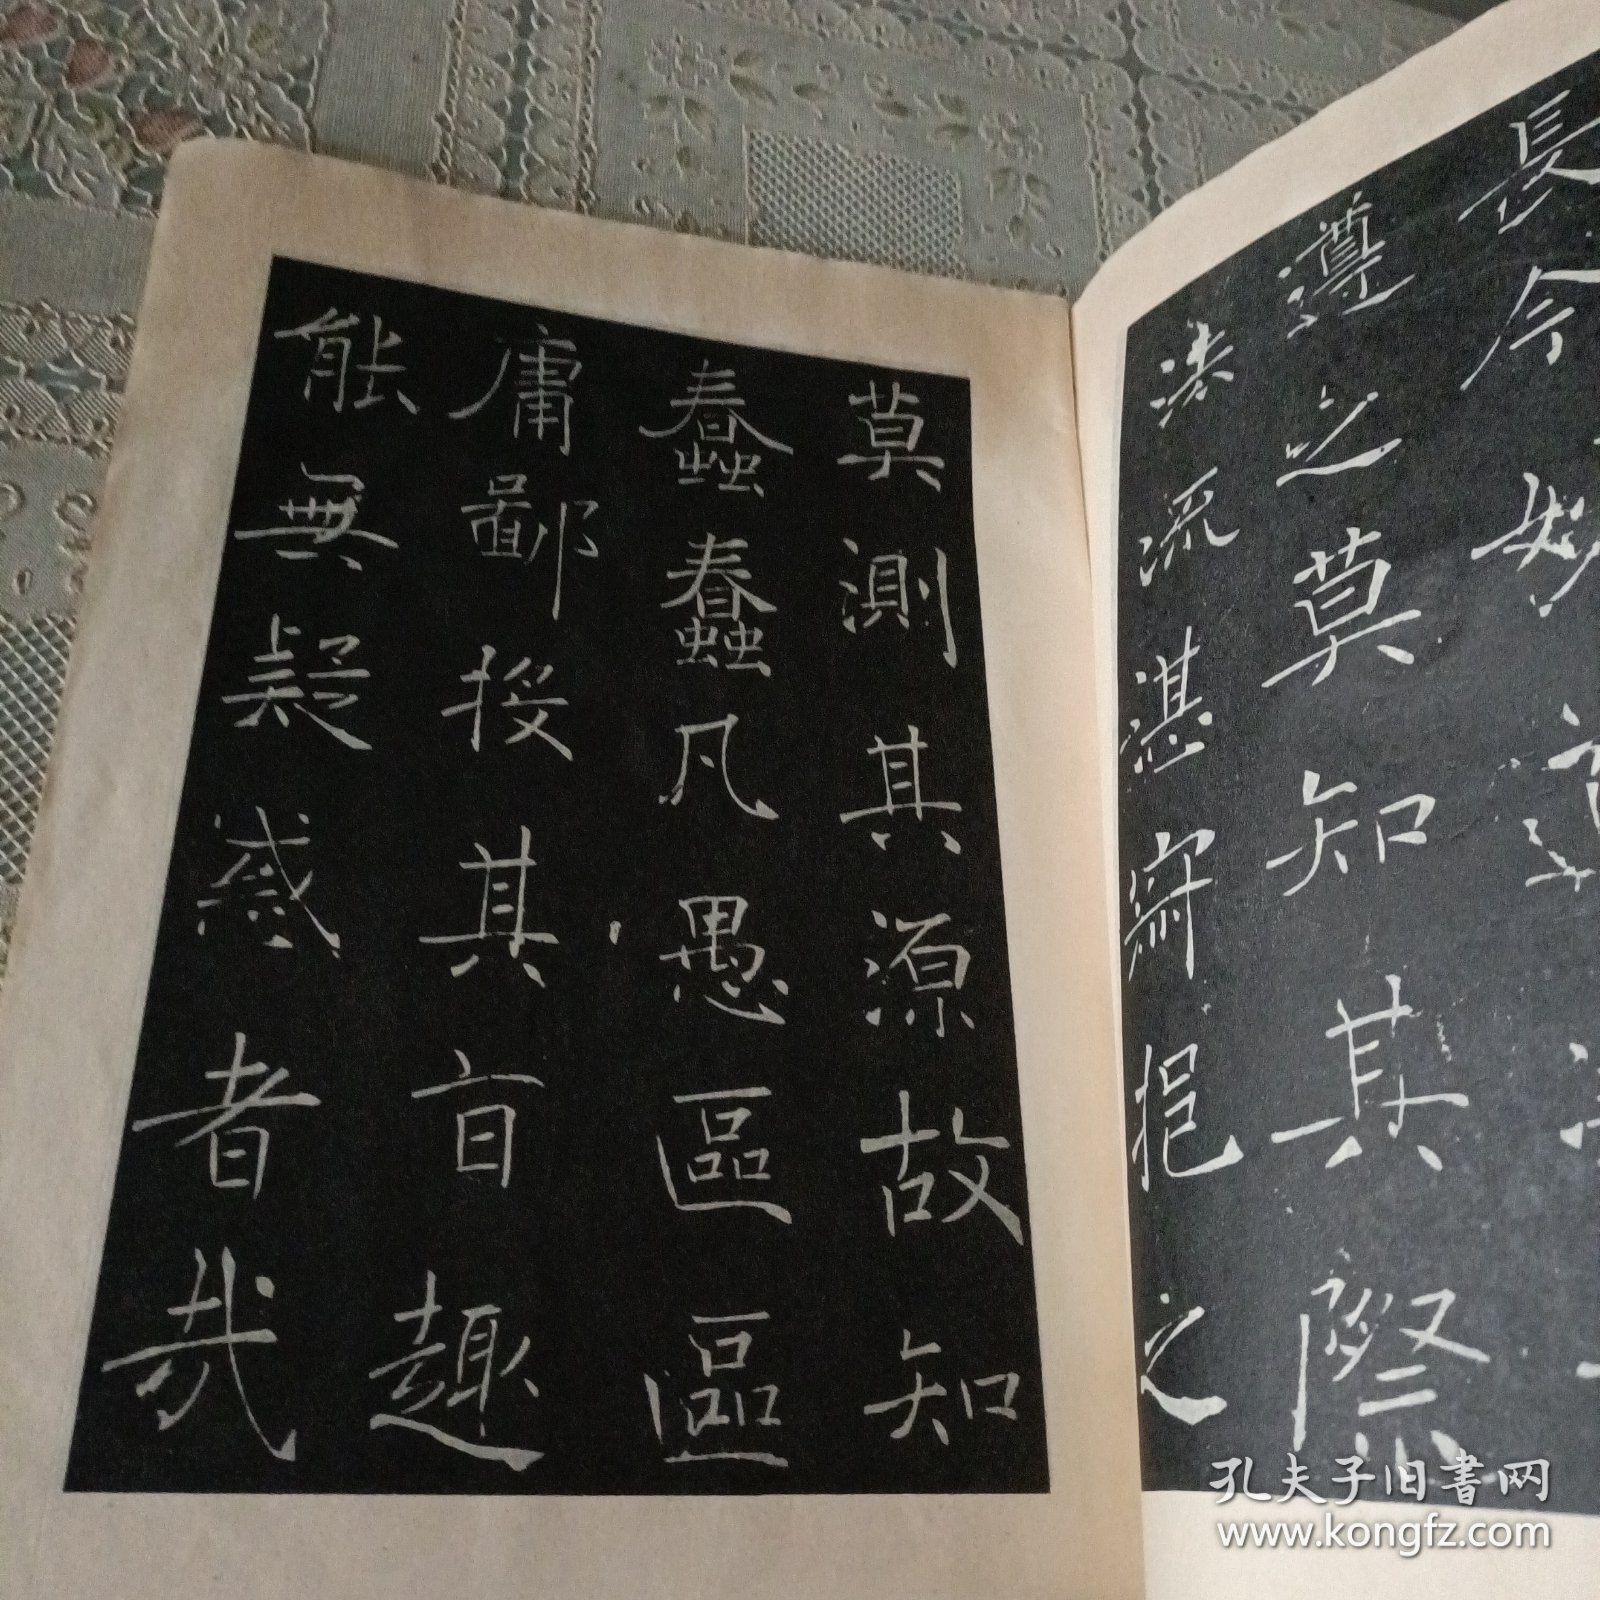 長今
妙道
遵之莫知其際
法流湛寂挹之
莫測其源故知
蠢蠢凡愚區區
庸鄙投其旨趣
能無疑惑者哉
孔夫子旧書网
www.kongfz.com